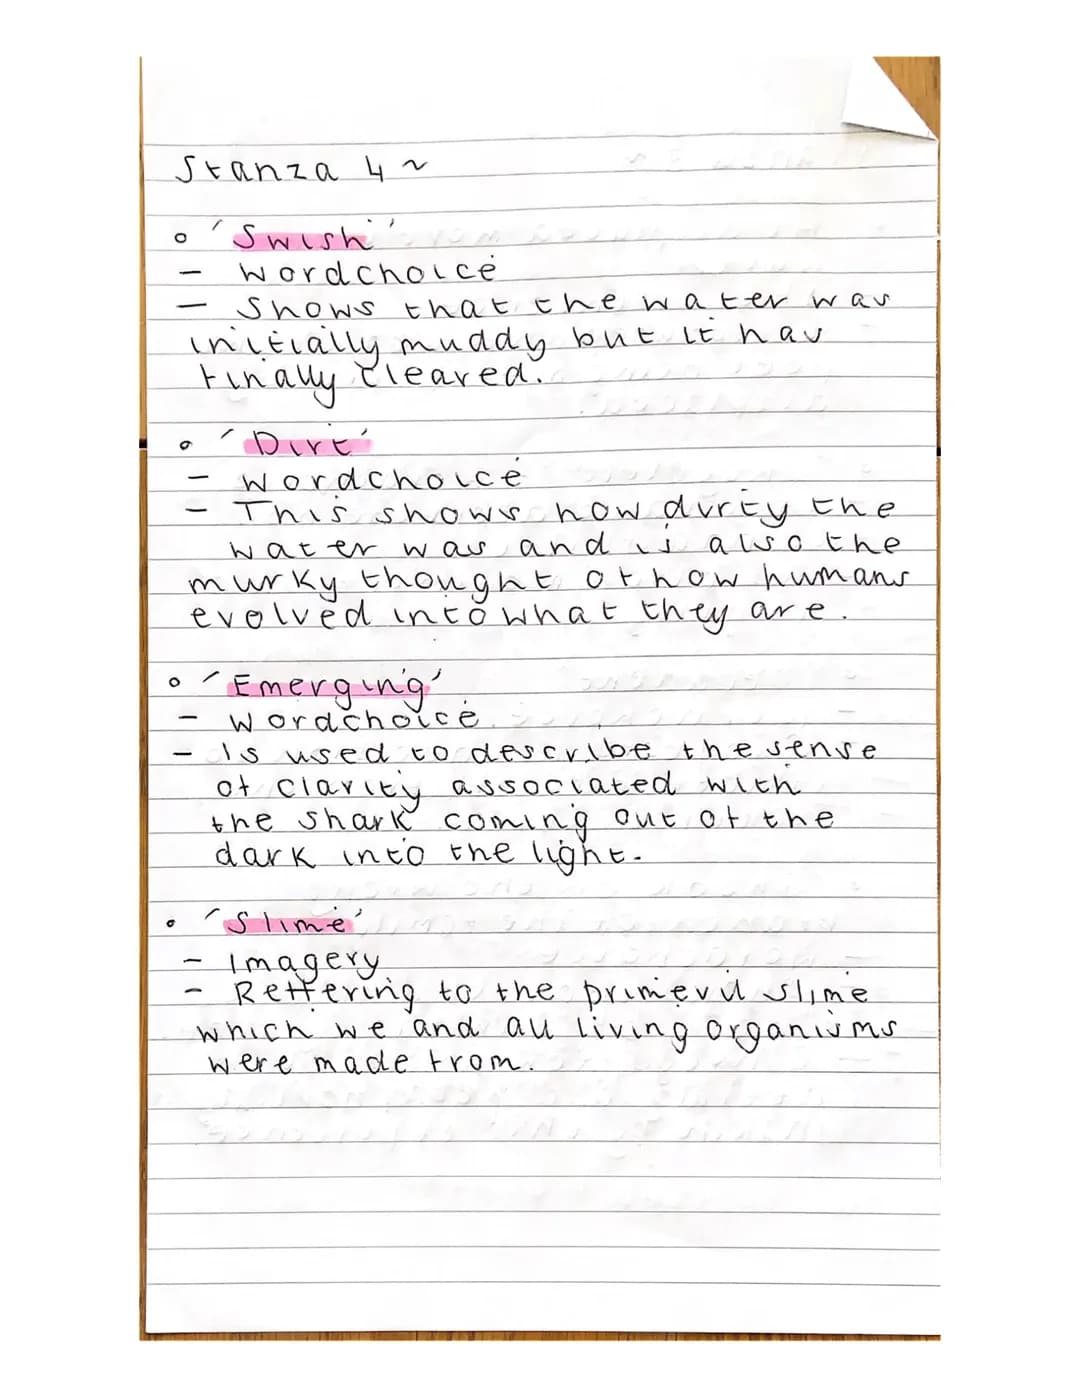 Stanza 4 ~
○ 'Swish'
- Wordchoice
- Shows that the water was
initially muddy but it has
finally cleared.
○ 'Dirt'
- Wordchoice
- This shows how dirty the
water was and is also the
murky thought of how humans
evolved into what they are.
○ 'Emerging'
- Wordchoice.
- Is used to describe the sense
of clarity associated with
the shark coming out of the
dark into the light.
○ 'Slime'
- Imagery
- Reffering to the primevil slime
which we and all living organisms
were made from.